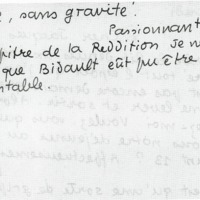 , sans gravité.
Passionnant
pitre de la Reddition Je n
que Bidault eût pu être
table.